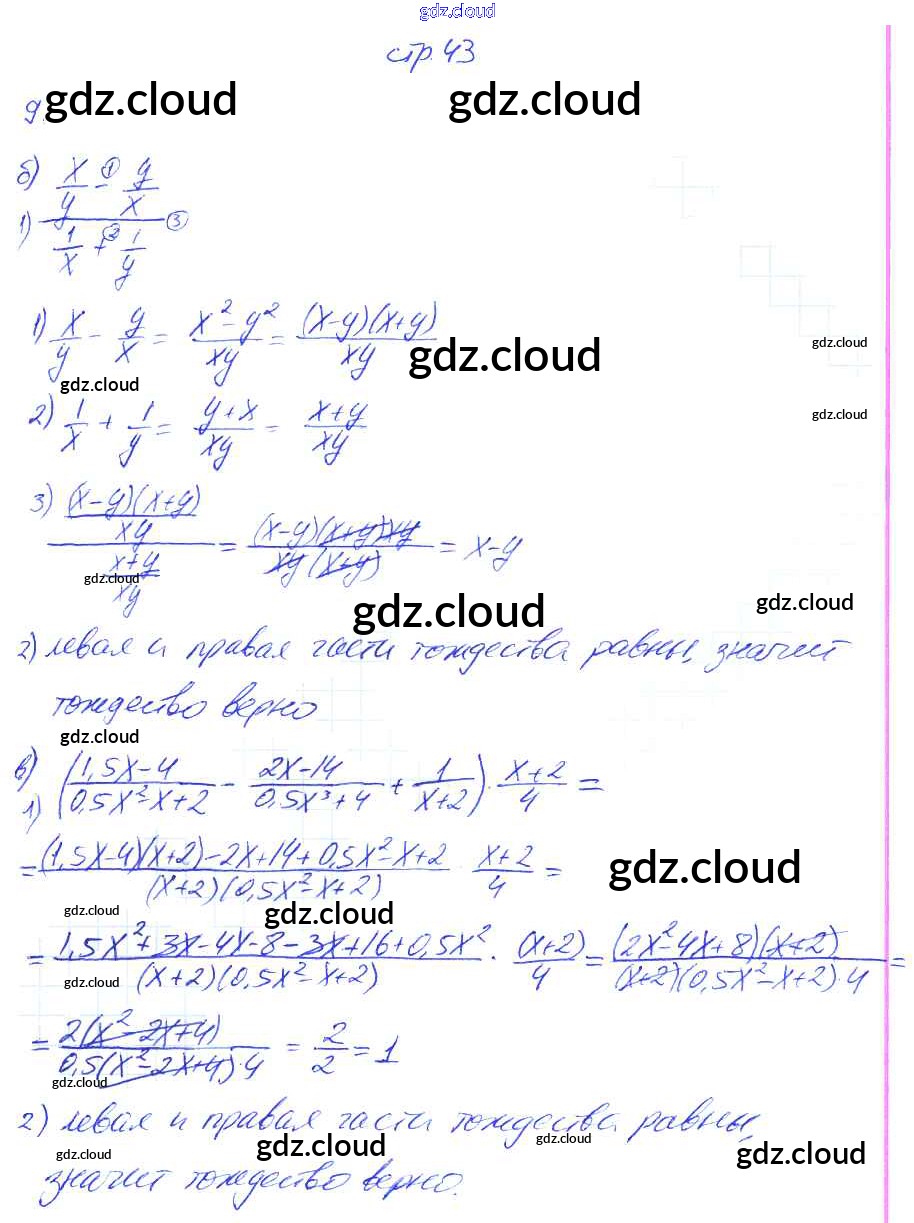 gdz.cloud
стр. 43
9. gdz.cloud gdz.cloud
б) x/y - ① y/x
1) ③
1/x + ② 1/y
1) x/y - y/x = (x² - y²)/(xy) = ((x-y)(x+y))/(xy) gdz.cloud gdz.cloud
gdz.cloud
2) 1/x + 1/y = (y+x)/(xy) = (x+y)/(xy) gdz.cloud
3) (((x-y)(x+y))/(xy))/((x+y)/(xy)) = ((x-y)(x+y)xy)/(xy(x+y)) = x-y
gdz.cloud
gdz.cloud gdz.cloud
2) левая и правая части тождества равны, значит
тождество верно
gdz.cloud
в)
1) ((1,5x-4)/(0,5x²-x+2) - (2x-14)/(0,5x³+4) + 1/(x+2)) · (x+2)/4 =
= ((1,5x-4)(x+2)-2x+14+0,5x²-x+2)/((x+2)(0,5x²-x+2)) · (x+2)/4 = gdz.cloud
gdz.cloud gdz.cloud
= (1,5x²+3x-4x-8-3x+16+0,5x²)/((x+2)(0,5x²-x+2)) · (x+2)/4 = ((2x²-4x+8)(x+2))/((x+2)(0,5x²-x+2)·4) =
gdz.cloud
= (2(x²-2x+4))/(0,5(x²-2x+4)·4) = 2/2 = 1
gdz.cloud
2) левая и правая части тождества равны,
gdz.cloud gdz.cloud gdz.cloud gdz.cloud
значит тождество верно.